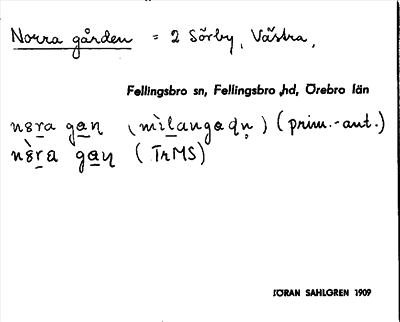 Norra gården = 2 Sörby, Västra,
Fellingsbro sn, Fellingsbro hd, Örebro län
nɛra gaɳ (mìlangadɳ) (prim.-ant.)
nɛ̀ra gaɳ (TrMS)
JÖRAN SAHLGREN 1909